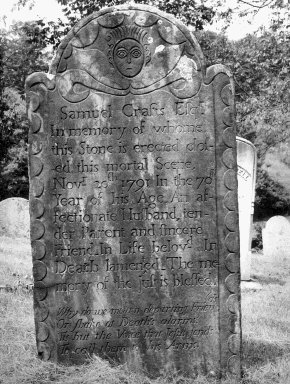 Samuel Crafts Esqr
In memory of whome
this Stone is erected clos-
ed this mortal Scene
Novr 20th 1791 In the 79
Year of his Age. An af-
fectionate Husband, ten-
der Parent and sincere
Friend. In Life belovd. In
Death lamented. The me-
mory of the just is blessed.
Why do we mourn departing Friends
Or shake at Death's alarms
Tis but the Voice that Jesus sends
To call them to his Arms